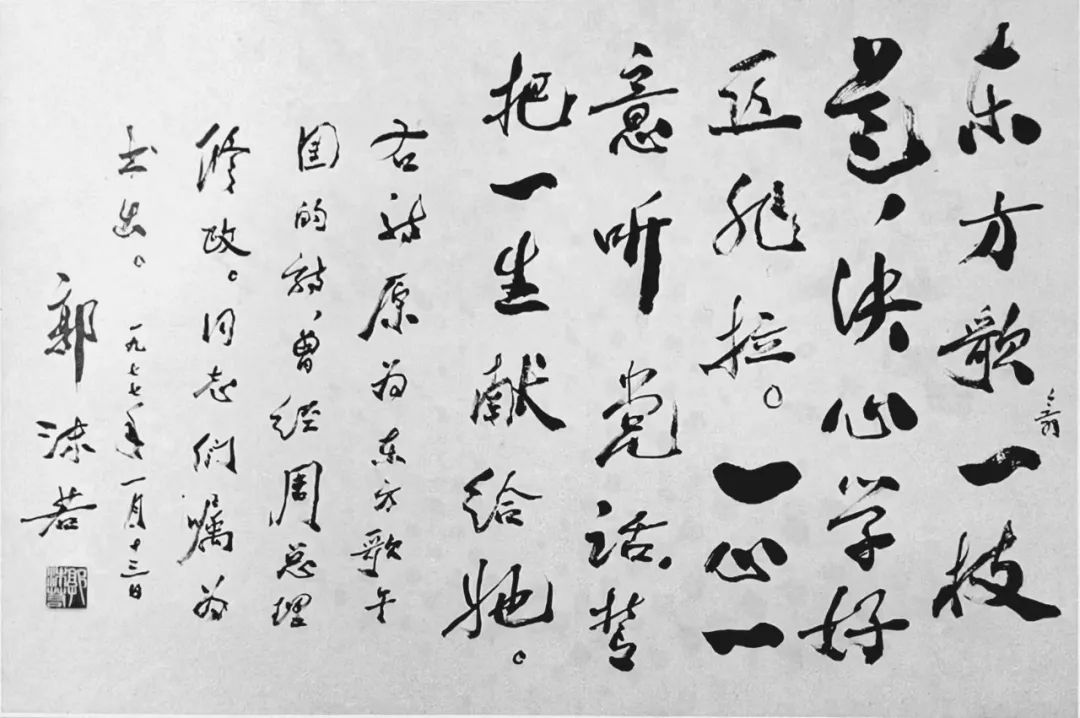 东方歌舞一枝
花，决心学好
亚非拉。一心一
意听党话，誓
把一生献给她。
右诗原为东方歌午
团的诗，曾经周总理
修改。同志们嘱为
书出。一九七七年一月十三日
郭沫若